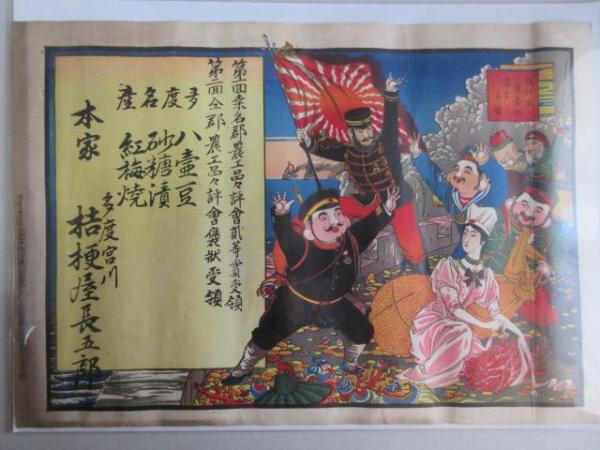 第一回桒名郡農工品々評會貳等賞受領
第二回仝郡農工品々評會褒狀受領
夛度名産
八壷豆
砂糖漬
紅梅焼
本家
多度宮川
桔梗屋長五郎